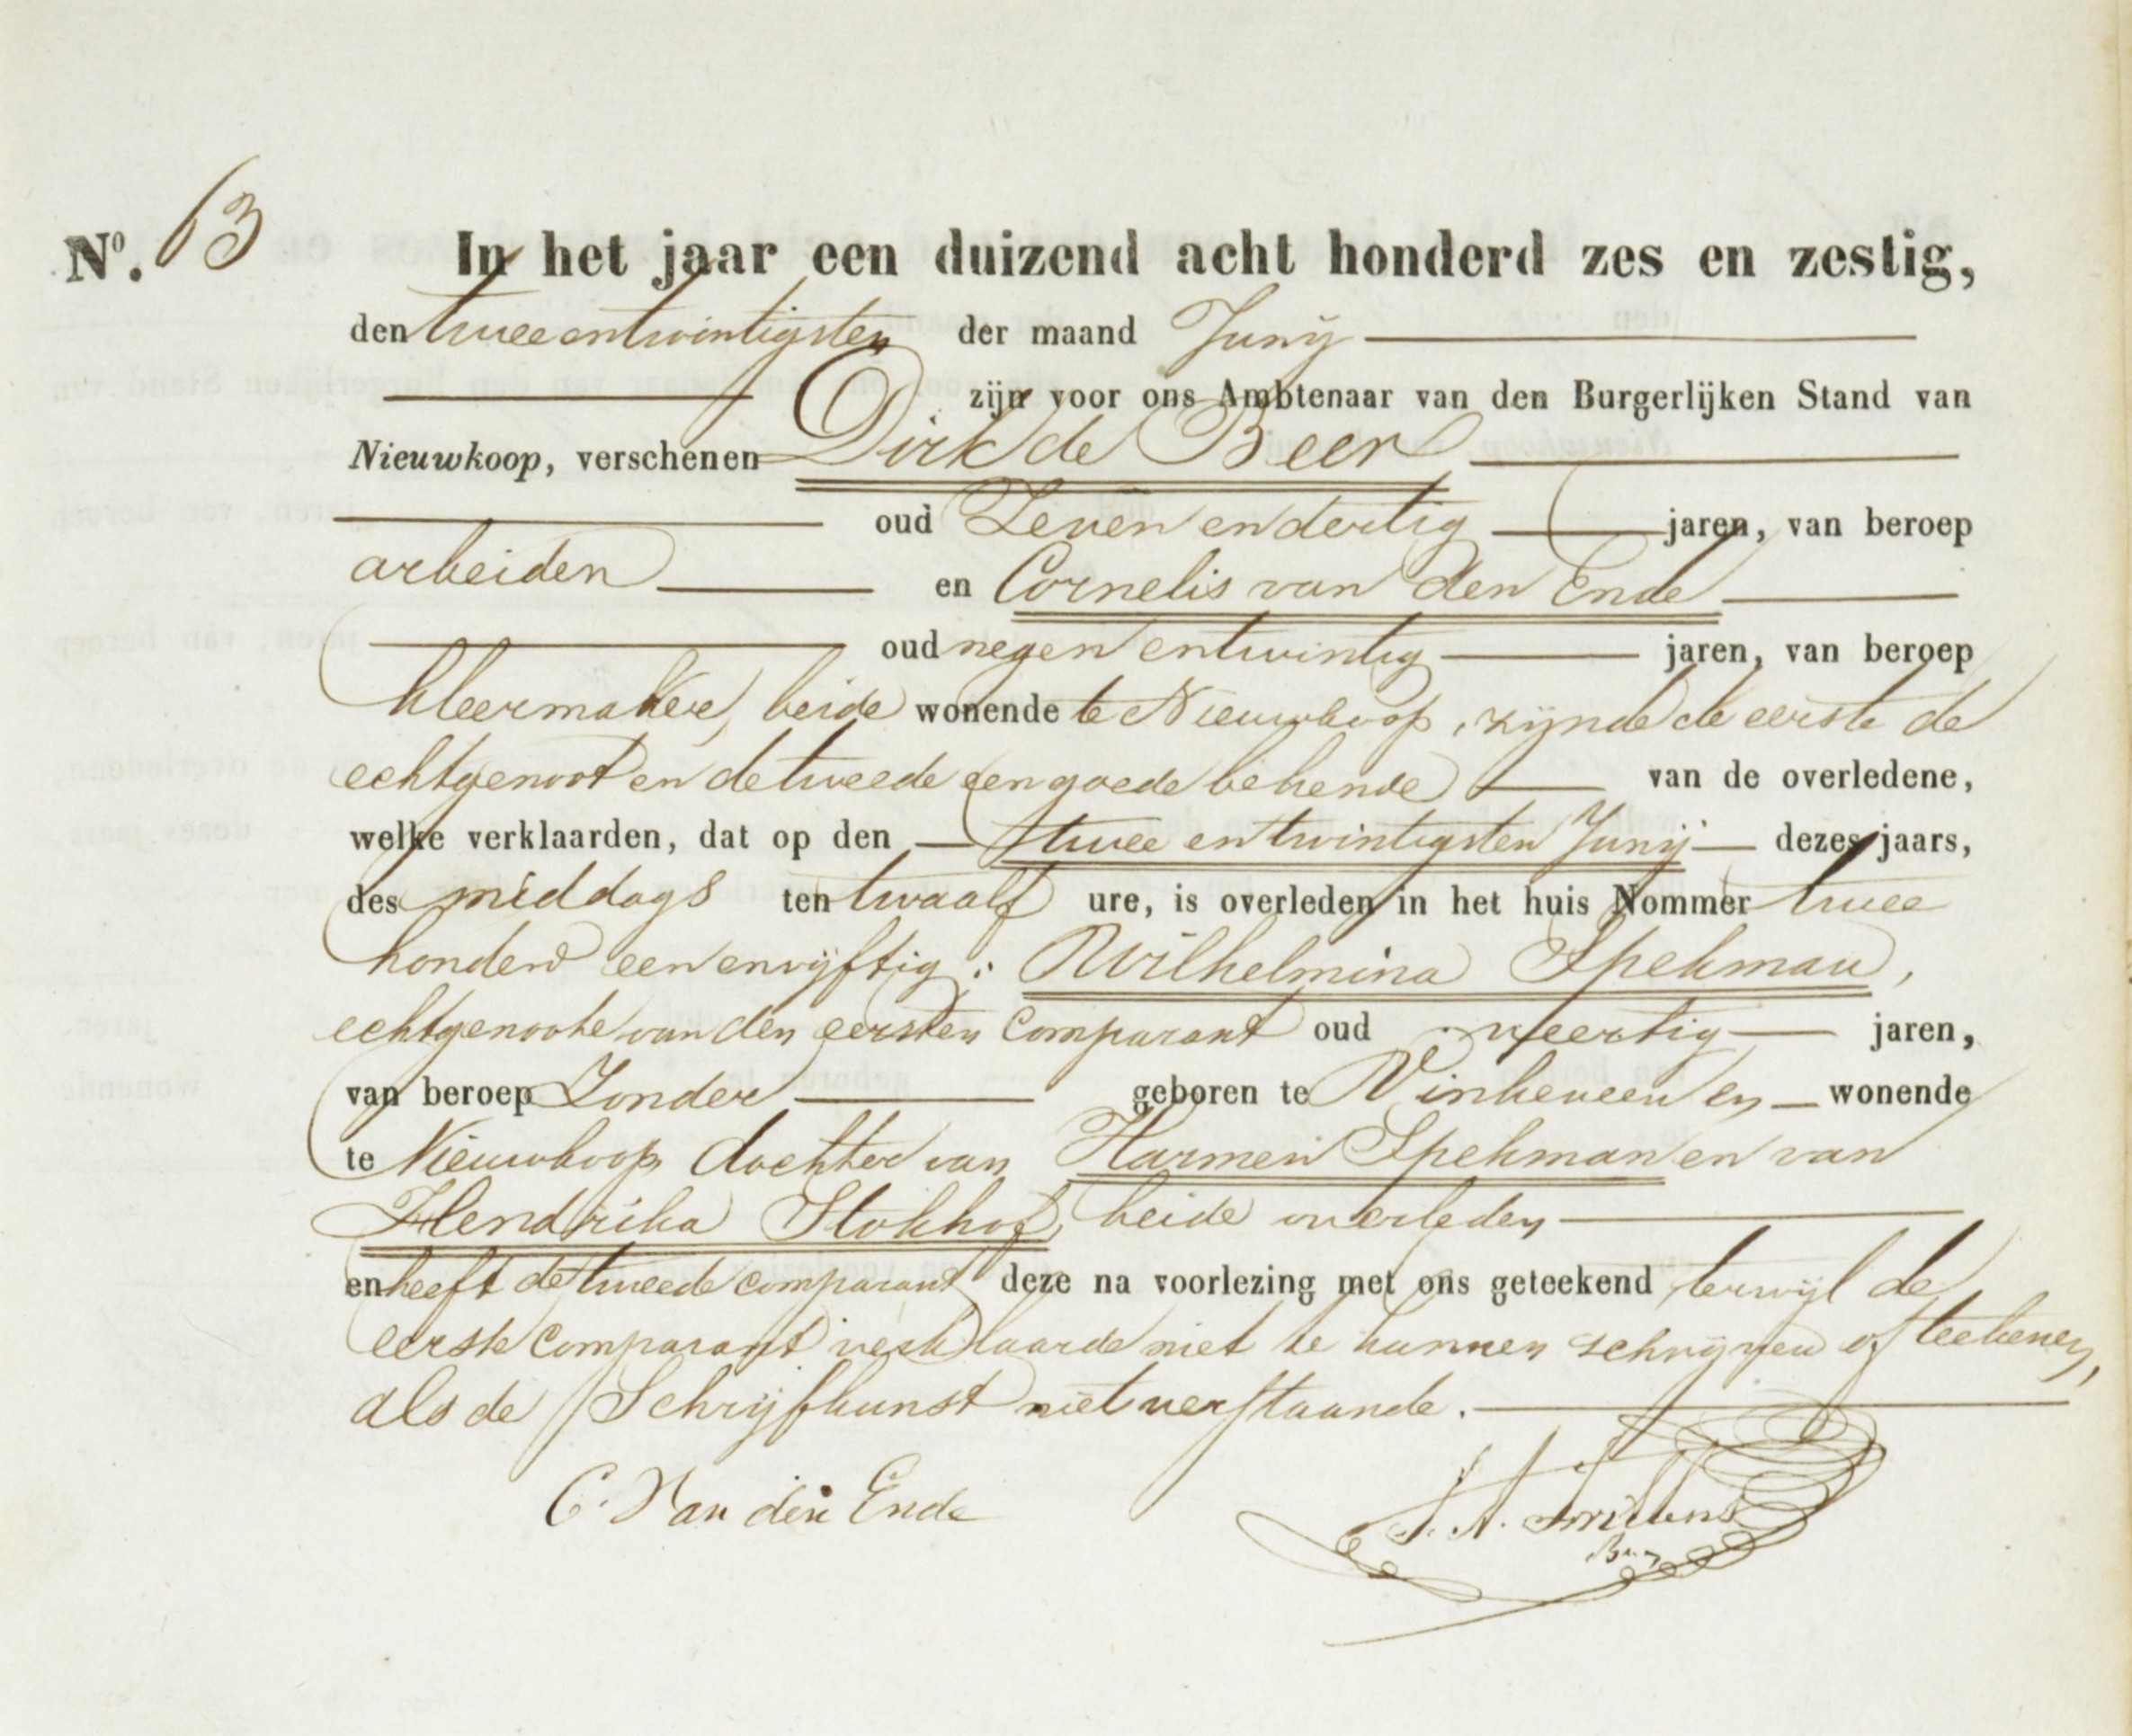 Nº. 63 In het jaar een duizend acht honderd zes en zestig,
den tweeentwintigsten der maand Junij
zijn voor ons Ambtenaar van den Burgerlijken Stand van
Nieuwkoop, verschenen Dirk de Beer
oud Zeven en dertig jaren, van beroep
arbeider en Cornelis van den Ende
oud negen entwintig jaren, van beroep
kleermaker, beide wonende te Nieuwkoop, zijnde de eerste de
echtgenoot en de tweede een goede bekende van de overledene,
welke verklaarden, dat op den twee entwintigsten Junij dezes jaars,
des middags ten twaalf ure, is overleden in het huis Nommer twee
honderd eenenvijftig: Wilhelmina Spekman,
echtgenoote van den eersten Comparant oud veertig jaren,
van beroep Zonder geboren te Vinkeveen en wonende
te Nieuwkoop dochter van Harmen Spekman en van
Hendrika Stokhof, beide overleden
en heeft de tweede comparant deze na voorlezing met ons geteekend terwijl de
eerste Comparant verklaarde niet te kunnen schrijven of teekenen,
als de Schrijfkunst niet verstaande.
C. Van den Ende